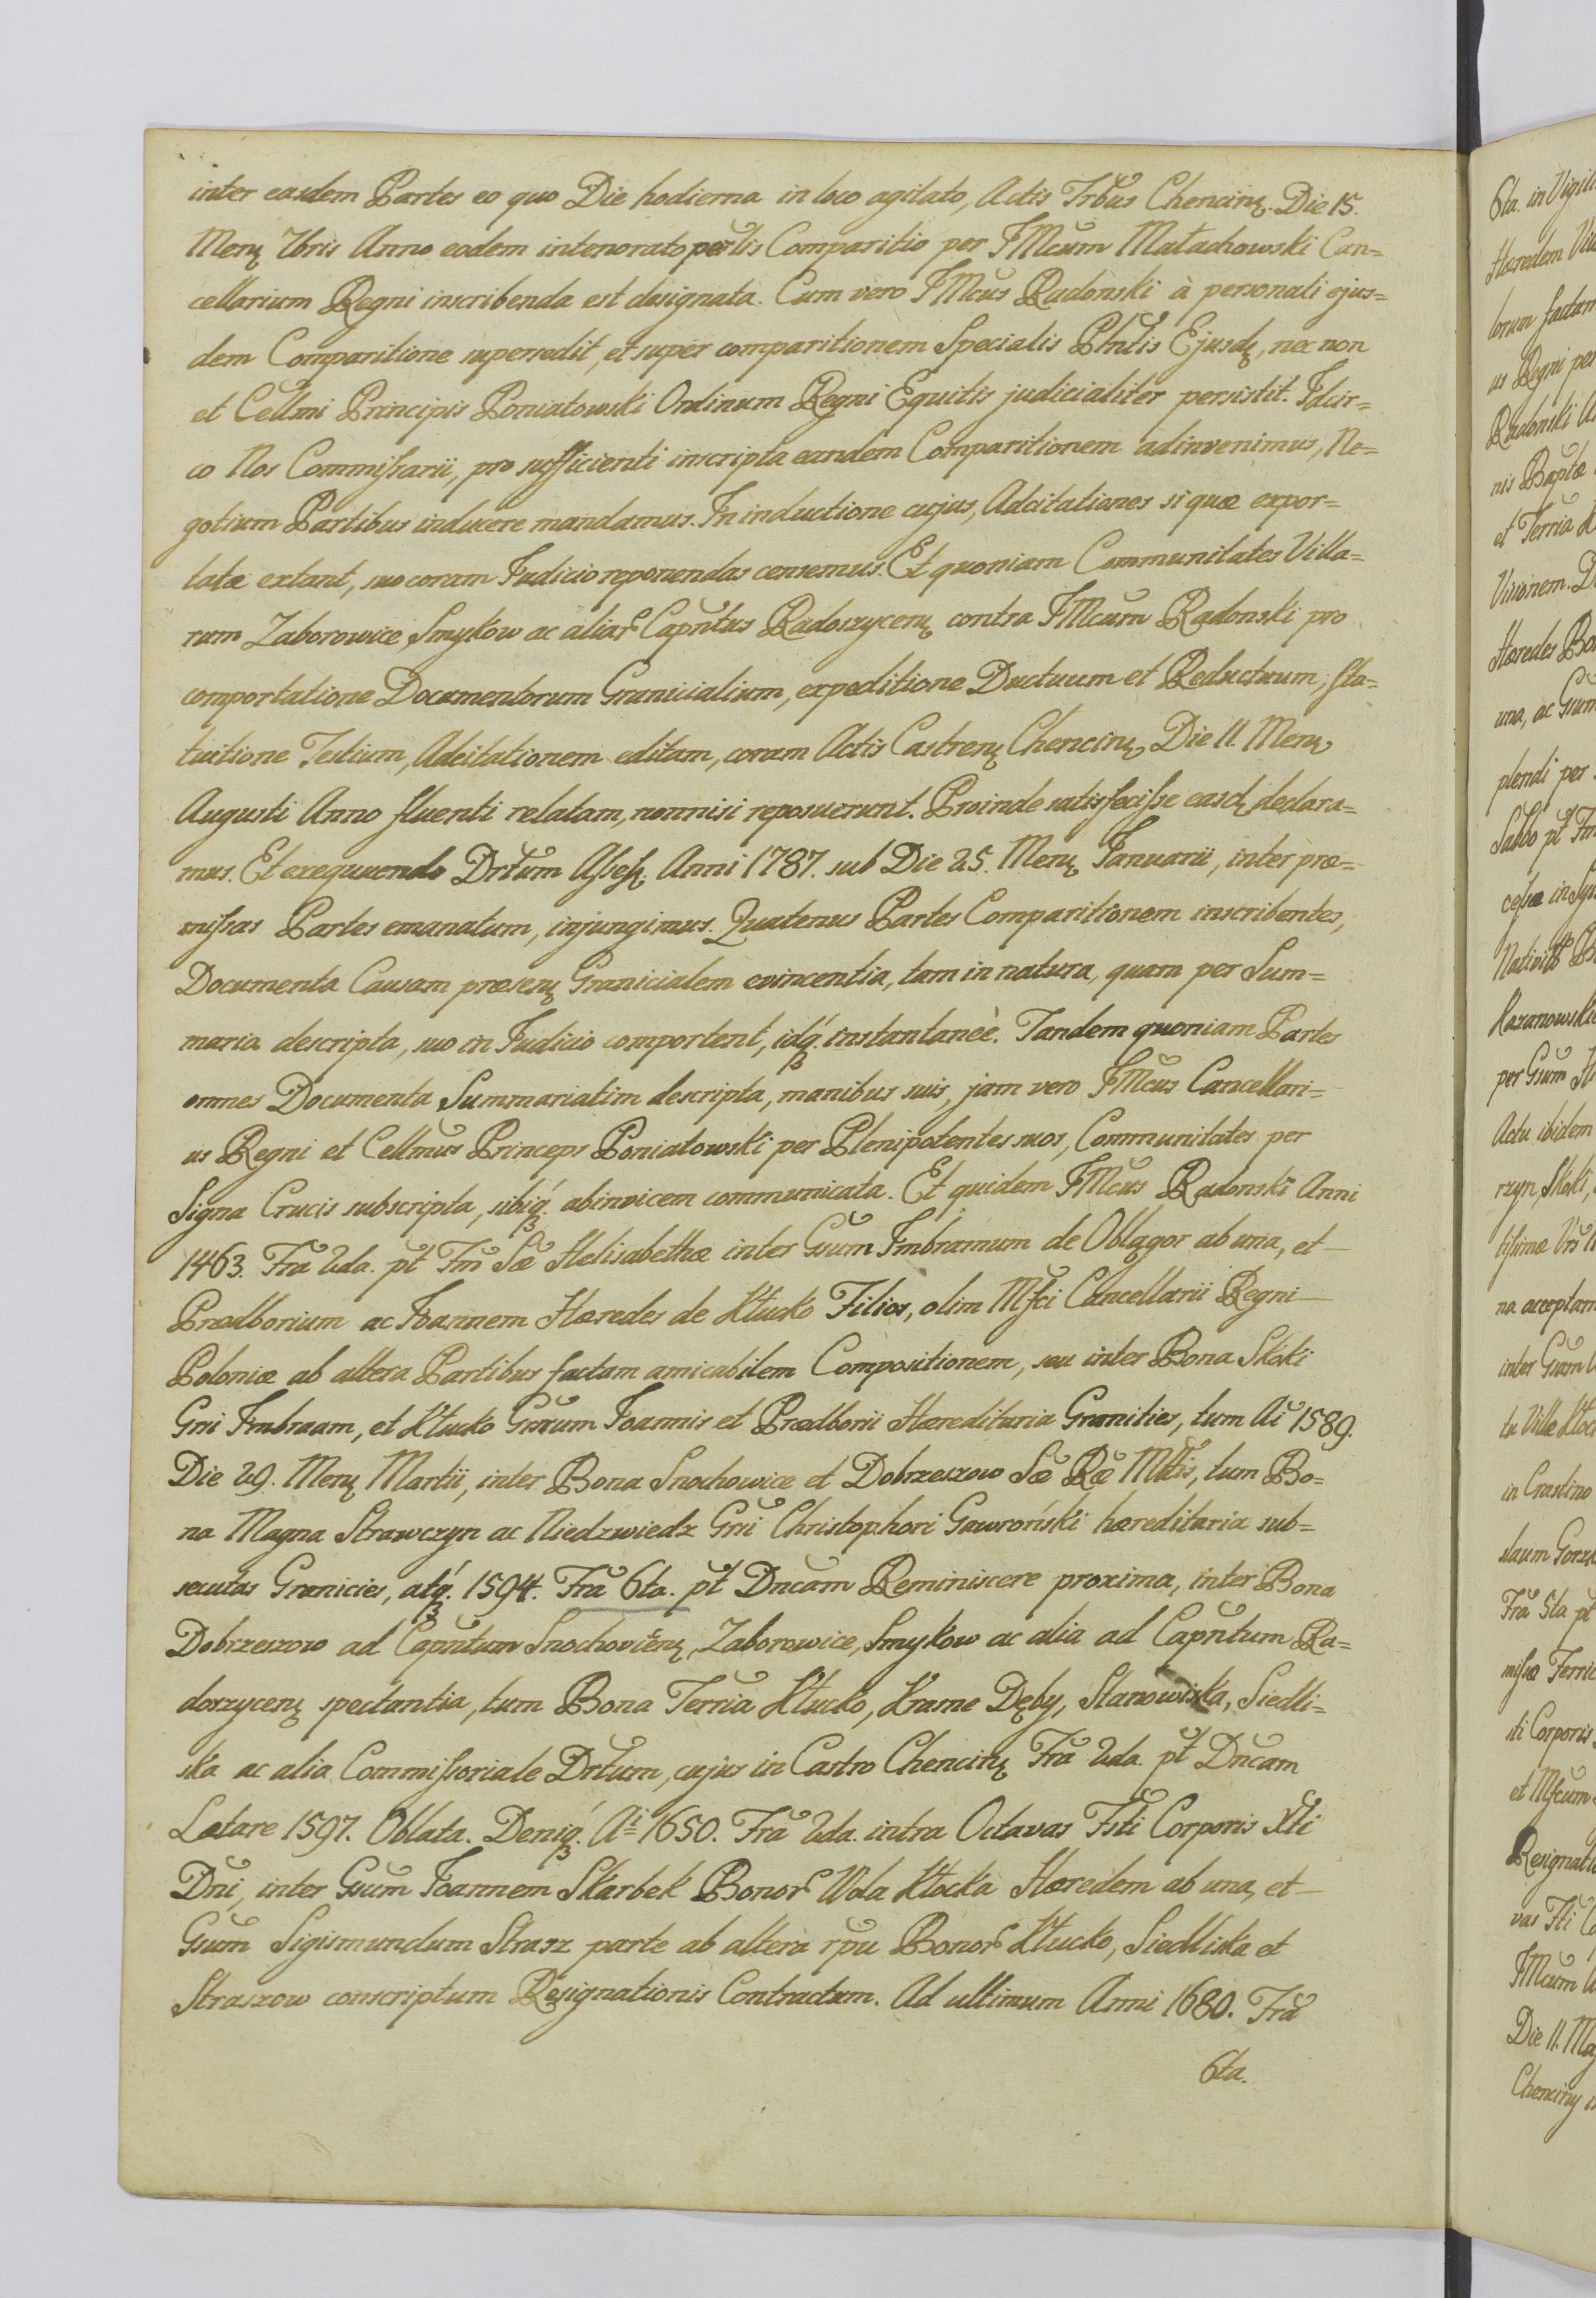 inter easdem Partes eo quo Die hodierna in loco agitato, Actis Trbus Chencinę. Die 15.
Menę 7bris Anno eodem intenorato perlis Comparitio per JMcum Małachowski Can=
cellarium Regni inscribenda est designata. Cum vero JMcus Radonski à personali ejus=
dem Comparitione supersedit, et super comparitionem Specialis Plntis Ejusdę, nec non
et Cellmi Principis Poniatowski Ordinum Regni Equitis judicialiter persistit. Idcir=
co Nos Commissarii, pro sufficienti inscripta eandem Comparitionem adinvenimus, Ne=
gotium Partibus inducere mandamus. In inductione cujus, Adcitationes si quæ expor=
tatæ extant, suo coram Judicio reponendas censemus. Et quoniam Communitates Villa=
rum Zaborowice, Smyków ac aliar Capntus Radoszycenę contra JMcum Radonski pro
comportatione Documentorum Granicialium, expeditione Ductuum et Reductuum, sta=
tuitione Testium, Adcitationem editam, coram Actis Castrenę Chencinę, Die 11. Menę
Augusti Anno fluenti relatam, nonnisi reposuerunt. Proinde satisfecisse easdę declara=
mus. Et exequendo Drtum Assesę. Anni 1787. sub Die 25. Menę Januarii, inter præ=
missas Partes emanatum, injungimus. Quatenus Partes Comparitionem inscribentes,
Documenta Causam præsenę Granicialem evincentia, tam in natura, quam per Sum=
maria descripta, suo in Judicio comportent, idq. instantaneè. Tandem quoniam Partes
omnes Documenta Summariatim descripta, manibus suis, jam vero JMcus Cancellari=
us Regni et Cellmus Princeps Poniatowski per Plenipotentes suos, Communitates per
Signa Crucis subscripta, sibiq. abinvicem communicata. Et quidem JMcus Radonski Anni
1463. Fra 2da. pt Fm Sæ Helisabethæ inter Gsum Imbramum de Oblągor ab una, et
Prædborium ac Joannem Hæredes de Kłucko Filios, olim Mfci Cancellarii Regni
Poloniæ ab altera Partibus factam amicabilem Compositionem, seu inter Bona Skóki
Grri Imbraam, et Kłucko Grrum Joannis et Prædborii Hæreditaria Granities, tum Ai 1589.
Die 29. Menę Martii, inter Bona Snochowice et Dobrzeszow Sæ Ræ Mttis, tum Bo=
na Magna Strawczyn ac Niedzwiedz Grri Christophori Gawroński hæreditaria sub=
secutas Granicies, atq. 1594. Fra 6ta. pt Dncam Reminiscere proxima, inter Bona
Dobrzeszow ad Capntum Snochovicenę, Zaborowice, Smykow ac alia ad Capntum Ra=
doszycenę spectantia, tum Bona Terria Kłucko, Krasne Dęby, Stanowiska, Siedli=
ska ac alia Commissoriale Drtum, cujus in Castro Chencinę Fra 2da. pt Dncam
Lætare 1597. Oblata. Deniq. Ai 1650. Fra 2da. intra Octavas Fsti Corporis Xti
Dni, inter Gsum Joannem Skarbek Bonor Wola Kłocka Hæredem ab una, et
Gsum Sigismundum Strasz parte ab altera rpu Bonor Kłucko, Siedliska et
Straszow conscriptum Resignationis Contractum. Ad ultimum Anni 1680. Fra
6ta.